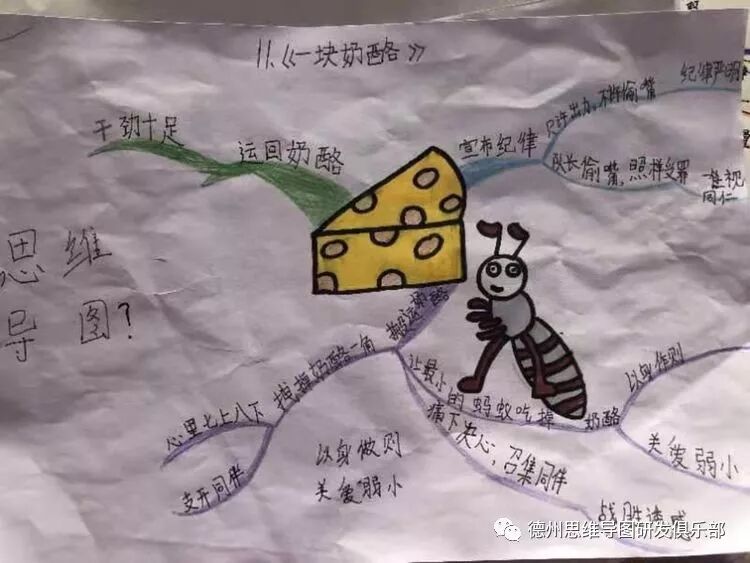 11.《一块奶酪》
干劲十足
运回奶酪
宣布纪律
只许出力,不许偷嘴
纪律严明
队长偷嘴,照样受罪
一视
同仁
思维
导图?
搬运奶酪
拽掉奶酪一角
心里七上八下
支开同伴
让最小的蚂蚁吃掉奶酪
以身作则
关爱弱小
痛下决心,召集同伴
战胜诱惑
以身做则
关爱弱小
德州思维导图研发俱乐部